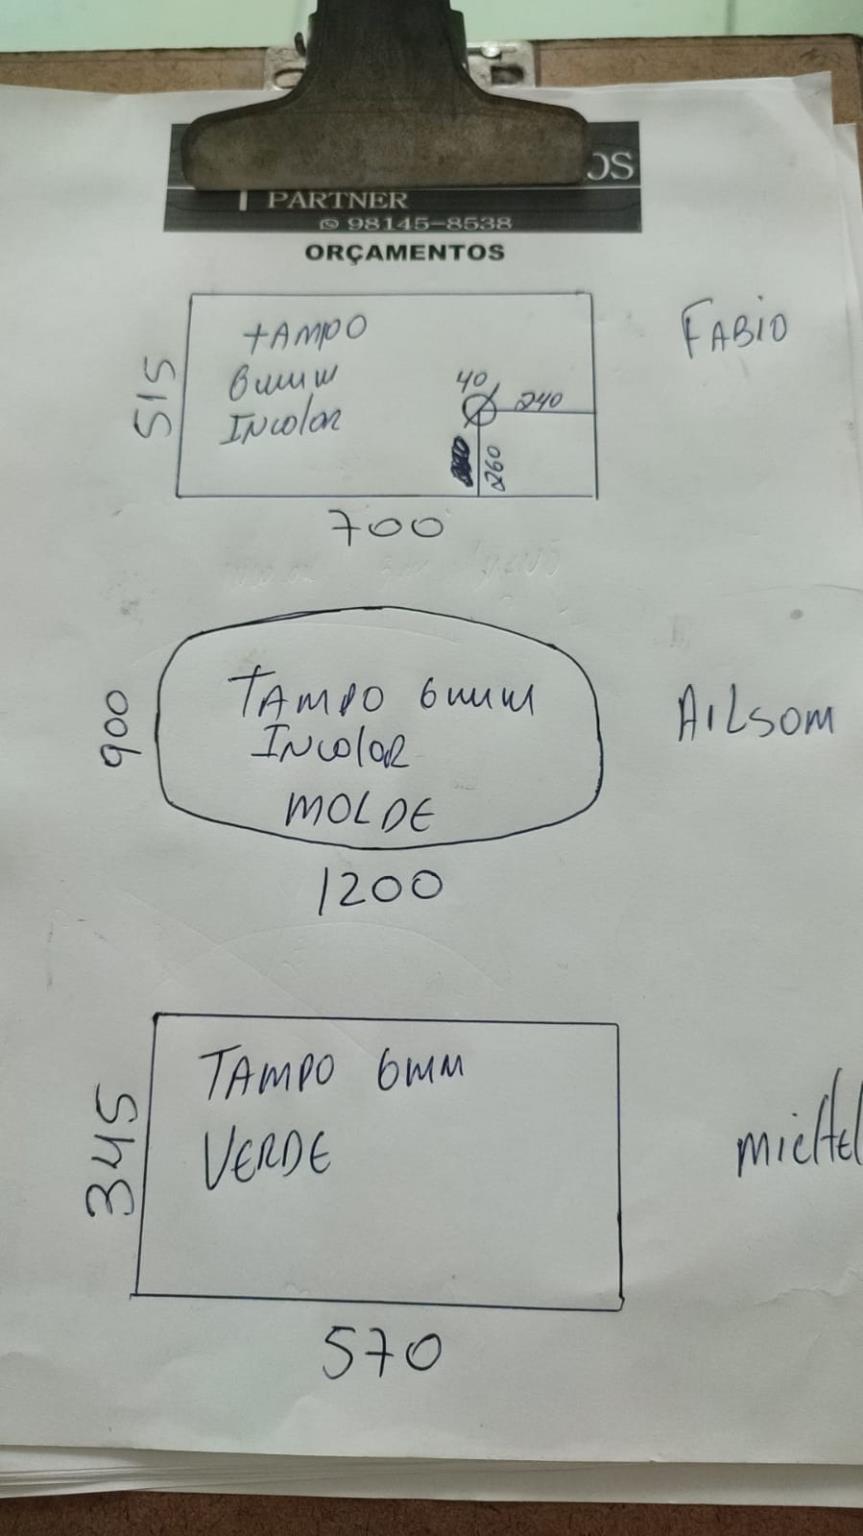 OS
PARTNER
98145-8538
ORÇAMENTOS
TAMPO
6mm
INCOLOR
515
40
240
260
700
FABIO
TAMPO 6mm
INCOLOR
MOLDE
900
1200
AILSOM
TAMPO 6MM
VERDE
345
570
MICHEL